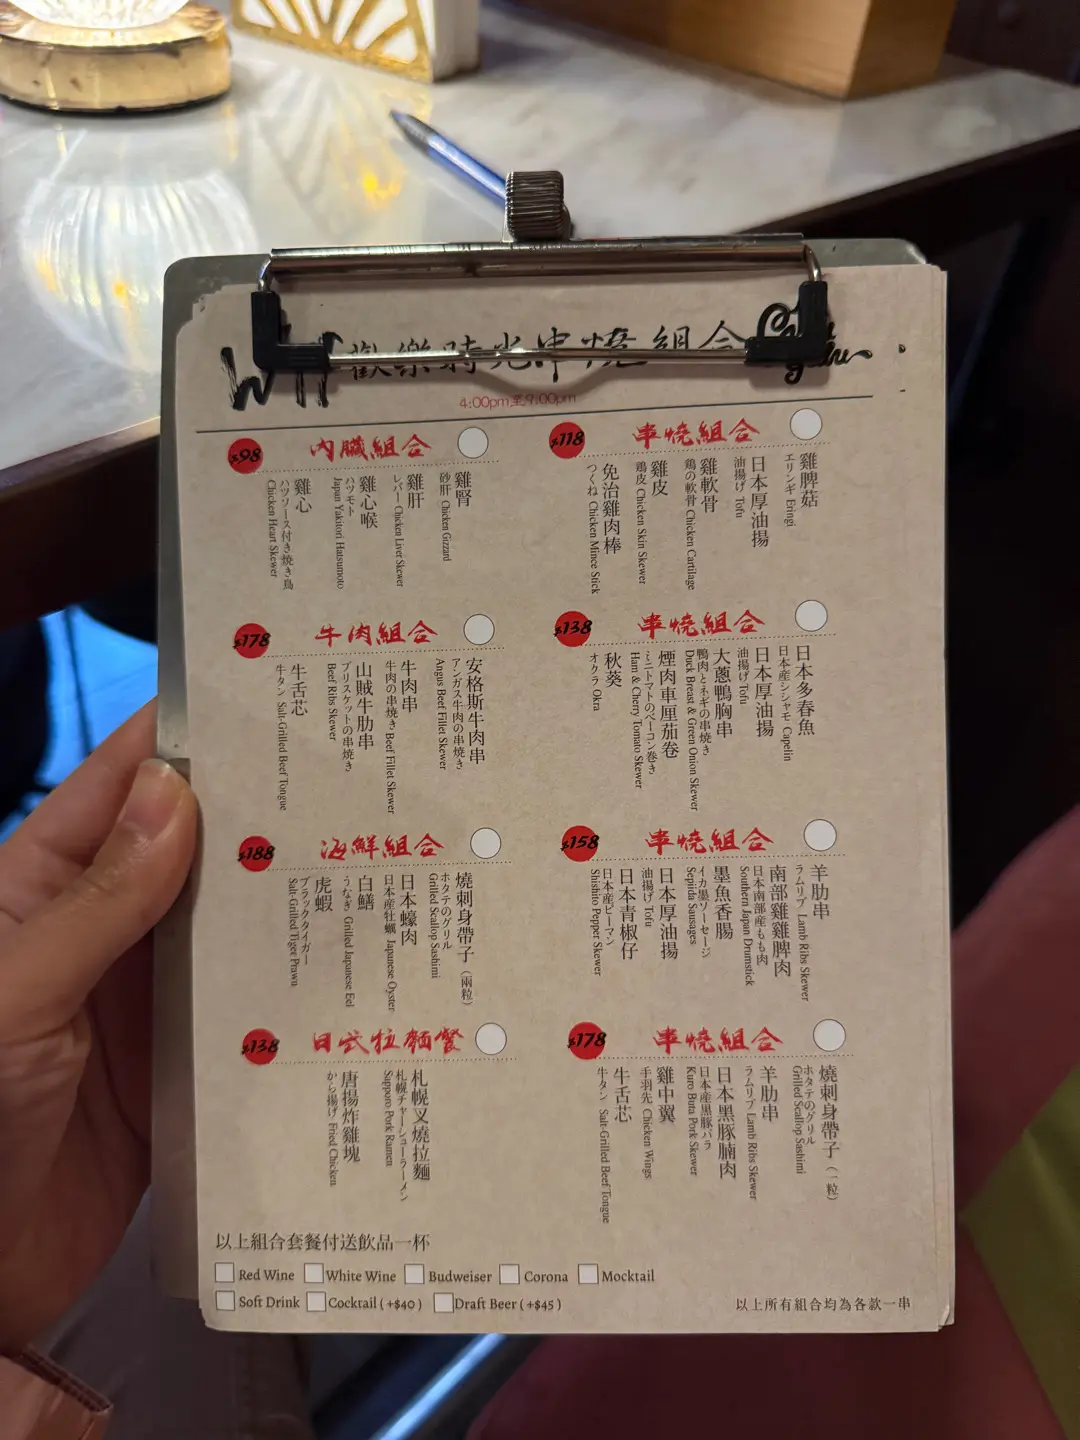 歡樂時光串燒組合
4:00pm至9:00pm
$98 內臟組合
雞腎
砂肝 Chicken Gizzard
雞肝
レバー Chicken Liver Skewer
雞心喉
ハツモト
Japan Yakitori Hatsumoto
雞心
ハツソース付き焼き鳥
Chicken Heart Skewer
$118 串燒組合
雞脾菇
エリンギ Eringi
日本厚油揚
油揚げ Tofu
雞軟骨
鶏の軟骨 Chicken Cartilage
雞皮
鶏皮 Chicken Skin Skewer
免治雞肉棒
つくね Chicken Mince Stick
$178 牛肉組合
安格斯牛肉串
アンガス牛肉の串焼き
Angus Beef Fillet Skewer
牛肉串
牛肉の串焼き Beef Fillet Skewer
山賊牛肋串
ブリスケットの串焼き
Beef Ribs Skewer
牛舌芯
牛タン Salt-Grilled Beef Tongue
$138 串燒組合
日本多春魚
日本産シシャモ Capelin
日本厚油揚
油揚げ Tofu
大蔥鴨胸串
鴨肉とネギの串焼き
Duck Breast & Green Onion Skewer
煙肉車厘茄卷
ミニトマトのベーコン巻き
Ham & Cherry Tomato Skewer
秋葵
オクラ Okra
$188 海鮮組合
燒刺身帶子（兩粒）
ホタテのグリル
Grilled Scallop Sashimi
日本蠔肉
日本産牡蠣 Japanese Oyster
白鱔
うなぎ Grilled Japanese Eel
虎蝦
ブラックタイガー
Salt-Grilled Tiger Prawn
$158 串燒組合
羊肋串
ラムリブ Lamb Ribs Skewer
南部雞雞脾肉
日本南部産もも肉
Southern Japan Drumstick
墨魚香腸
イカ墨ソーセージ
Sepiida Sausages
日本厚油揚
油揚げ Tofu
日本青椒仔
日本産ピーマン
Shishito Pepper Skewer
$138 日式拉麵餐
札幌叉燒拉麵
札幌チャーシューラーメン
Sapporo Pork Ramen
唐揚炸雞塊
から揚げ Fried Chicken
$178 串燒組合
燒刺身帶子（一粒）
ホタテのグリル
Grilled Scallop Sashimi
羊肋串
ラムリブ Lamb Ribs Skewer
日本黑豚腩肉
日本産黒豚バラ
Kuro Buta Pork Skewer
雞中翼
手羽先 Chicken Wings
牛舌芯
牛タン Salt-Grilled Beef Tongue
以上組合套餐付送飲品一杯
Red Wine White Wine Budweiser Corona Mocktail
Soft Drink Cocktail ( +$40 ) Draft Beer ( +$45 )
以上所有組合均為各款一串